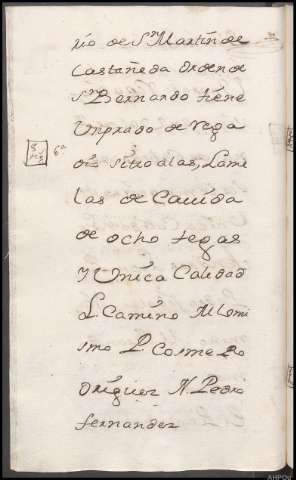 rio de Sn Martin de
Castañeda Orden de
Sn Bernardo tiene
Un prado de Vega
6ª
sitro alas, Lami
las de Cavida
de ocho tegas
y Unica Calidad
L. Camino M. lomi
smo P. Cosme Ro
driguez N. Pedro
fernandez
AHPOU